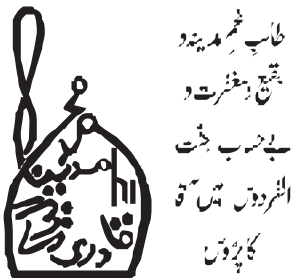 طالبِ غمِ مدینہ و
بقیع و مغفرت و
بے حساب جنّت
الفردوس میں آقا
کا پڑوس
قادری